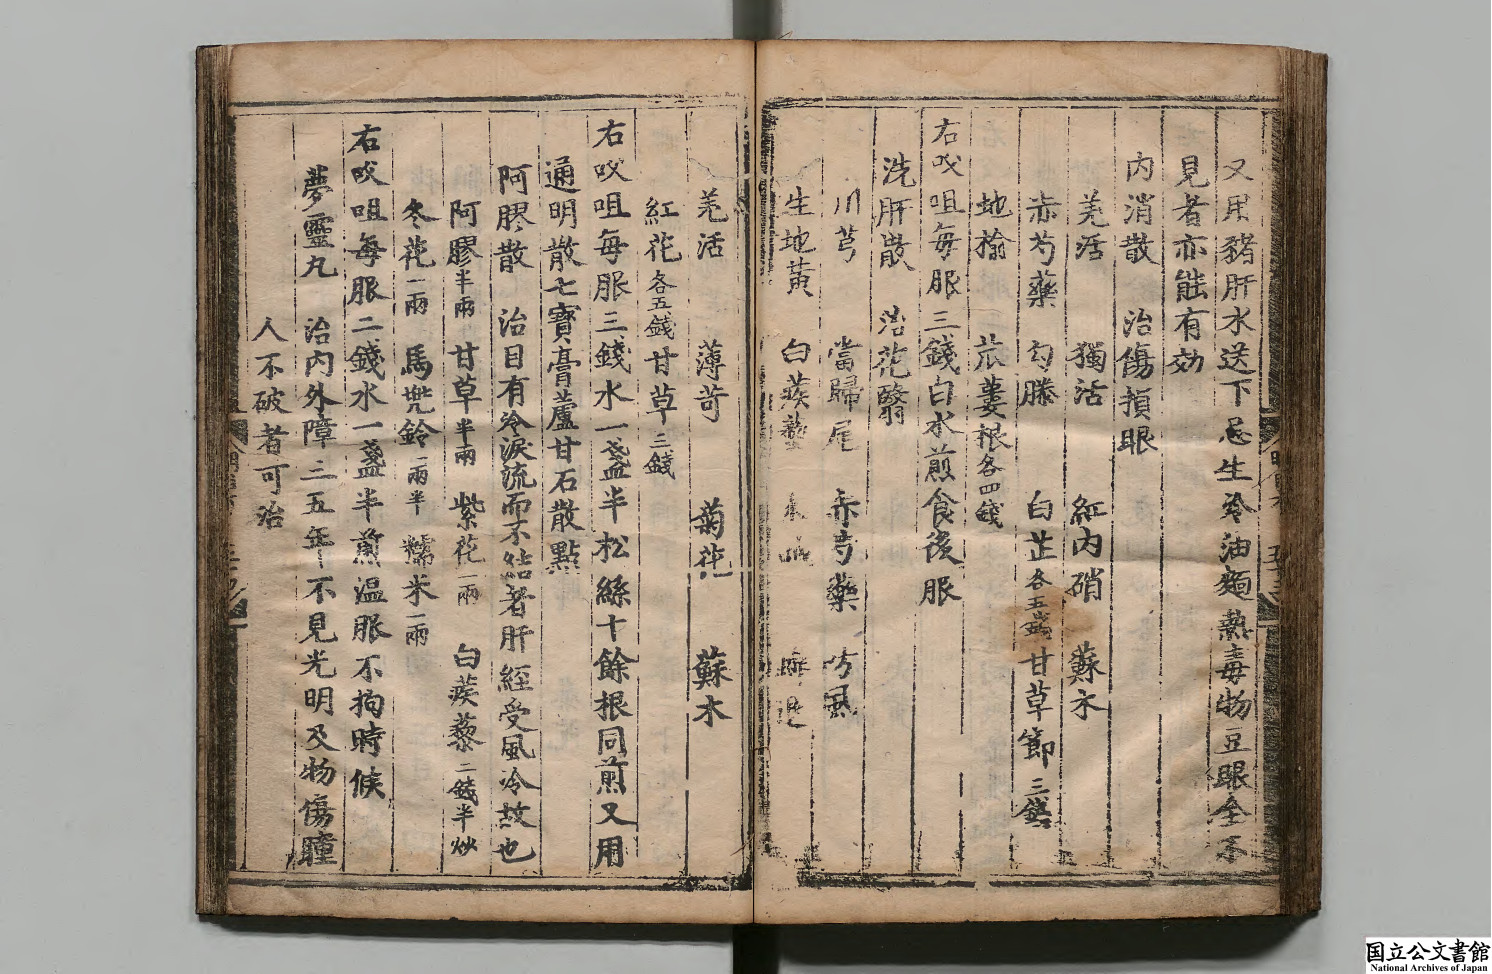 又用豬肝水送下忌生冷油麵熱毒物豆眼全不
見者亦能有効
內消散 治傷損眼
羌活 獨活 紅內硝 蘇木
赤芍藥 勾滕 白芷各五錢甘草節三錢
地榆 苽蔞根各四錢
右㕮咀每服三錢白水煎食後服
洗肝散 治花翳
川芎 當歸尾 赤芍藥 防風
生地黃 白蒺藜
羌活 薄苛 菊花 蘇木
紅花各五錢甘草三錢
右㕮咀每服三錢水一盞半松絲十餘根同煎又用
通明散七寶膏蘆甘石散點
阿膠散 治目有冷淚流而不結者肝經受風冷故也
阿膠半兩甘草半兩 紫花一兩 白蒺藜二錢半炒
冬花一兩 馬兠鈴一兩半 糯米一兩
右㕮咀每服二錢水一盞半煎温服不拘時候
夢靈丸 治內外障三五年不見光明及物傷瞳
人不破者可治
国立公文書館
National Archives of Japan